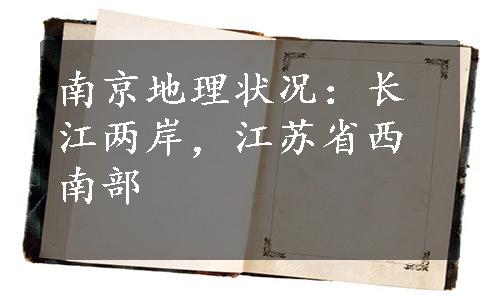 南京地理状况：长
江两岸，江苏省西
南部